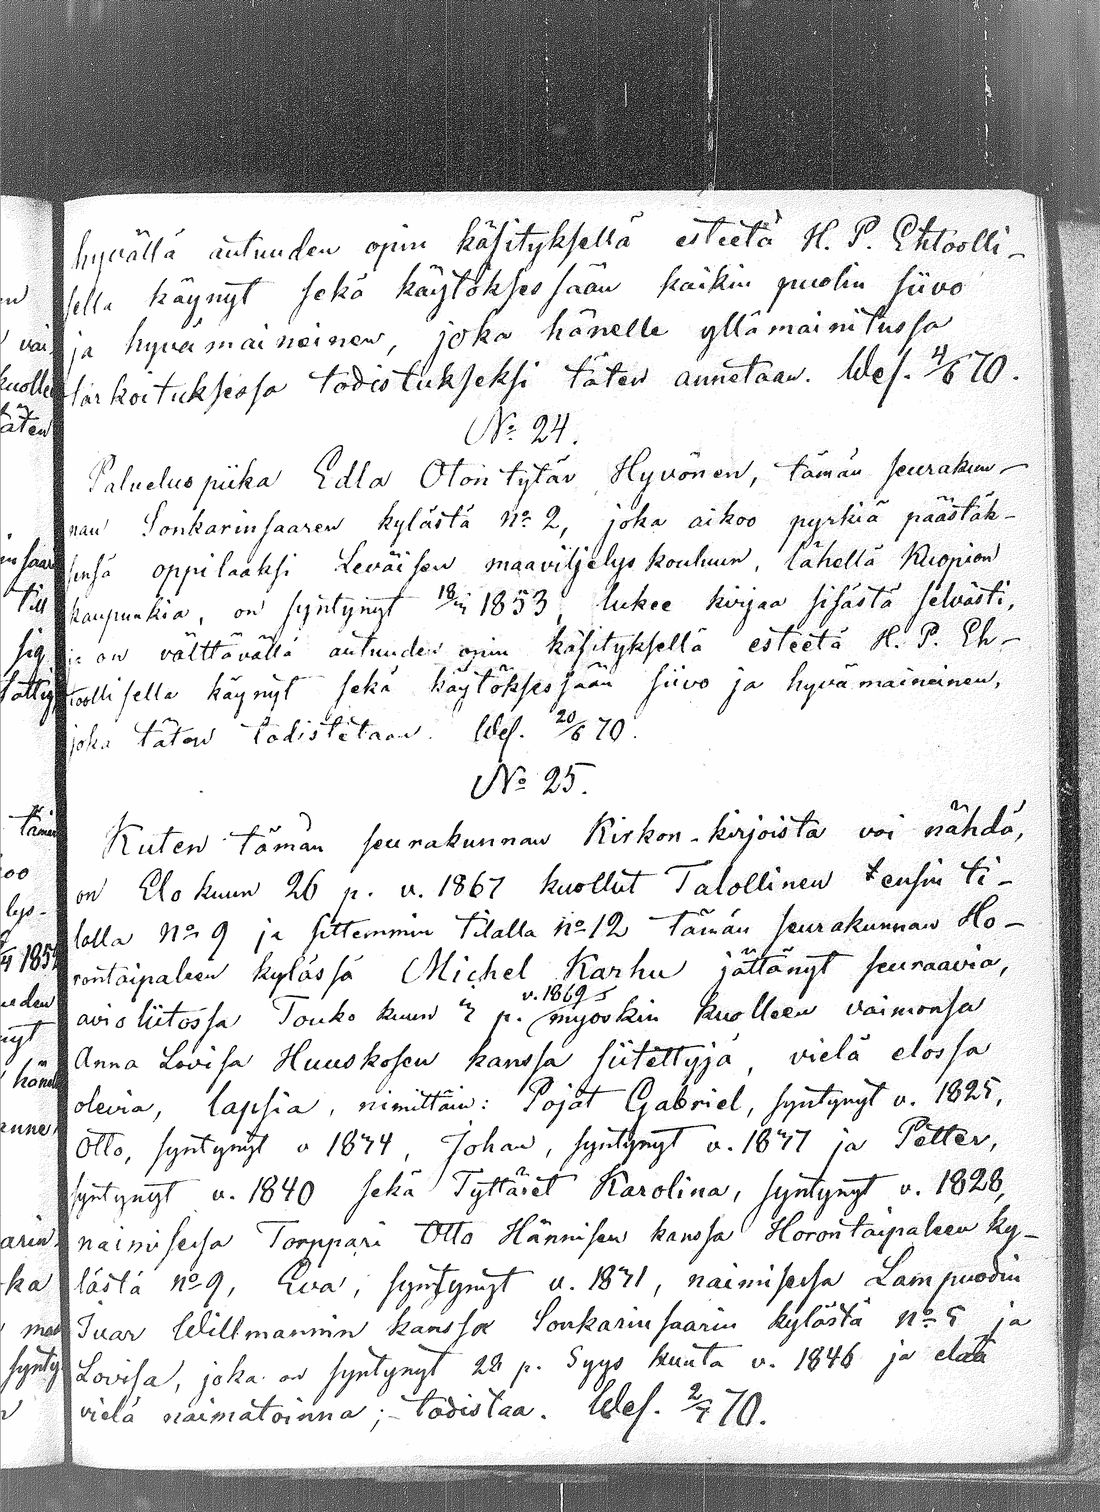 hyvällä autuuden opin käsityksellä esteetä H. P. Ehtoolli-
sella käynyt sekä käytöksessään kaikin puolin siivo
ja hyvämaineinen, joka hänelle yllämainitussa
tarkoituksessa todistukseksi täten annetaan. Wes. 4/6 70.
No 24.
Paluelus piika Edla Otontytär Hyvönen, tämän seurakun-
nan Sonkarinsaaren kylästä no 2, joka aikoo pyrkiä päästäk-
sensä oppilaaksi Leväisen maaviljelyskouluun, lähellä Kuopion
kaupunkia, on syntynyt 1853, lukee kirjaa sisästä selvästi,
ja on välttävällä autuuden opin käsityksellä esteetä H. P. Eh-
toollisella käynyt sekä käytöksessään siivo ja hyvämaineinen,
joka täten todistetaan. Wes. 20/6 70.
No 25.
Kuten tämän seurakunnan Kirkon-kirjoista voi nähdä,
on Elokuun 26 p. v. 1867 kuollut Talollinen ensin ti-
lalla no 9 ja sittemmin tilalla no 12 tämän seurakunnan Ho-
rontaipaleen kylässä Michel Karhu jättänyt seuraavia,
avioliitossa Toukokuun p. v. 1869 myöskin kuolleen vaimonsa
Anna Lovisa Huuskosen kanssa siitettyjä, vielä elossa
olevia, lapsia, nimittäin: Pojat Gabriel, syntynyt v. 1825,
Otto, syntynyt v 1834, Johan, syntynyt v. 1837 ja Petter,
syntynyt v. 1840 sekä Tyttäret Karolina, syntynyt v. 1828,
naimisessa Torppari Otto Hännisen kanssa Horontaipaleen ky-
lästä no 9, Eva, syntynyt v. 1831, naimisessa Lampuodin
Ivar Willmannin kanssa Sonkarinsaarin kylästä no 5 ja
Lovisa, joka on syntynyt 28 p. Syys kuuta v. 1846 ja elää
vielä naimatoinna; - todistaa. Wes. 2/7 70.